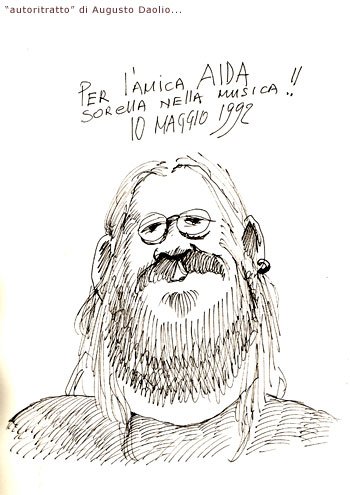 "autoritratto" di Augusto Daolio...
PER l'AMICA AIDA
SORELLA NELLA MUSICA!!
10 MAGGIO 1992